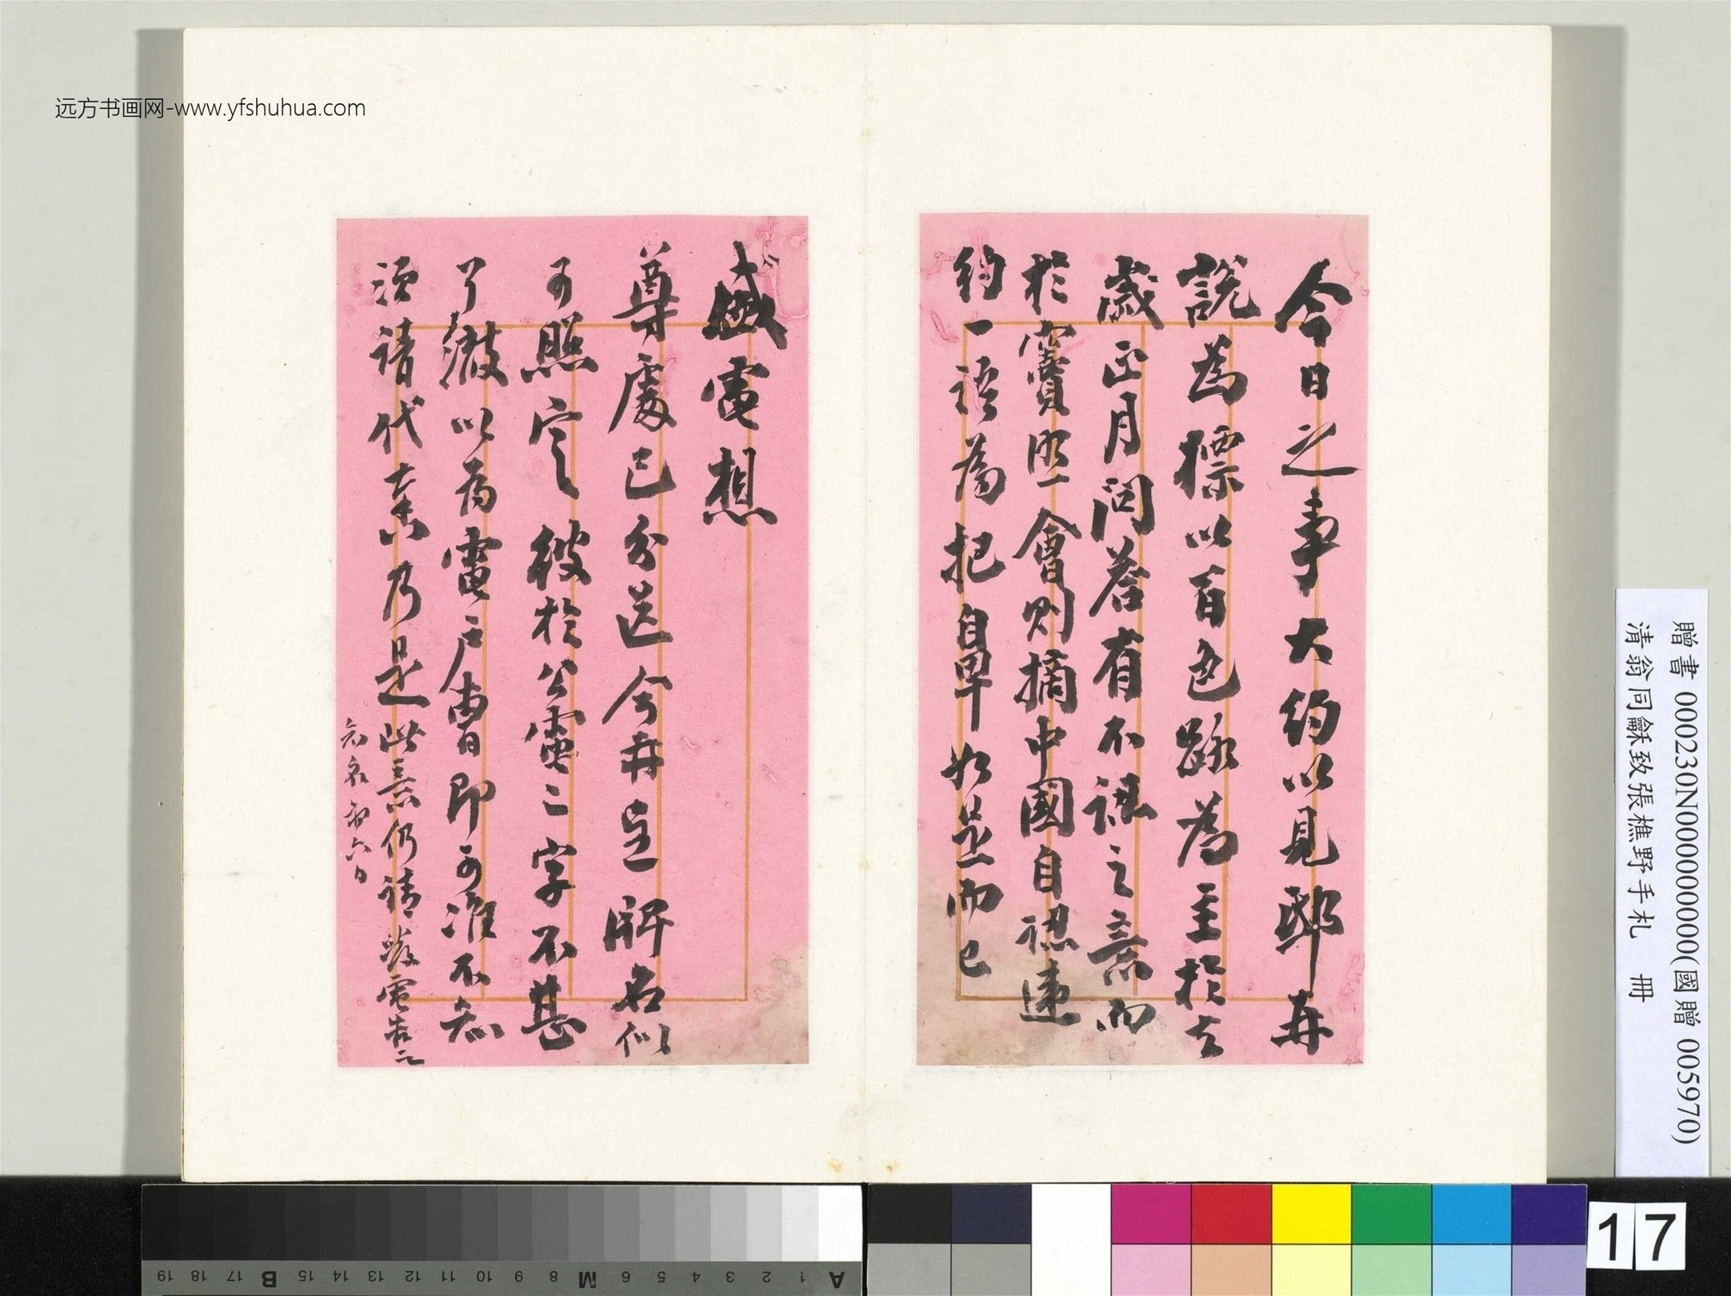 远方书画网-www.yfshuhua.com
今日之事大約以見邸弃
說為標以百色路為主於去
歲正月問荅有不認之意而
於竇照會則摘中國自認違
約一語為把自畢如是而已
盛電想
尊處已分送今并呈 解名似
可照定彼於公電二字不甚
了徹以為電戶曹即可准不知
須請代奏乃是此意仍請 發電告之
名泐 初六日
贈書 000230N000000000(國贈 005970)
清翁同龢致張樵野手札 冊
17
A 1 2 3 4 5 6 M 8 9 10 11 12 13 14 15 B 17 18 19